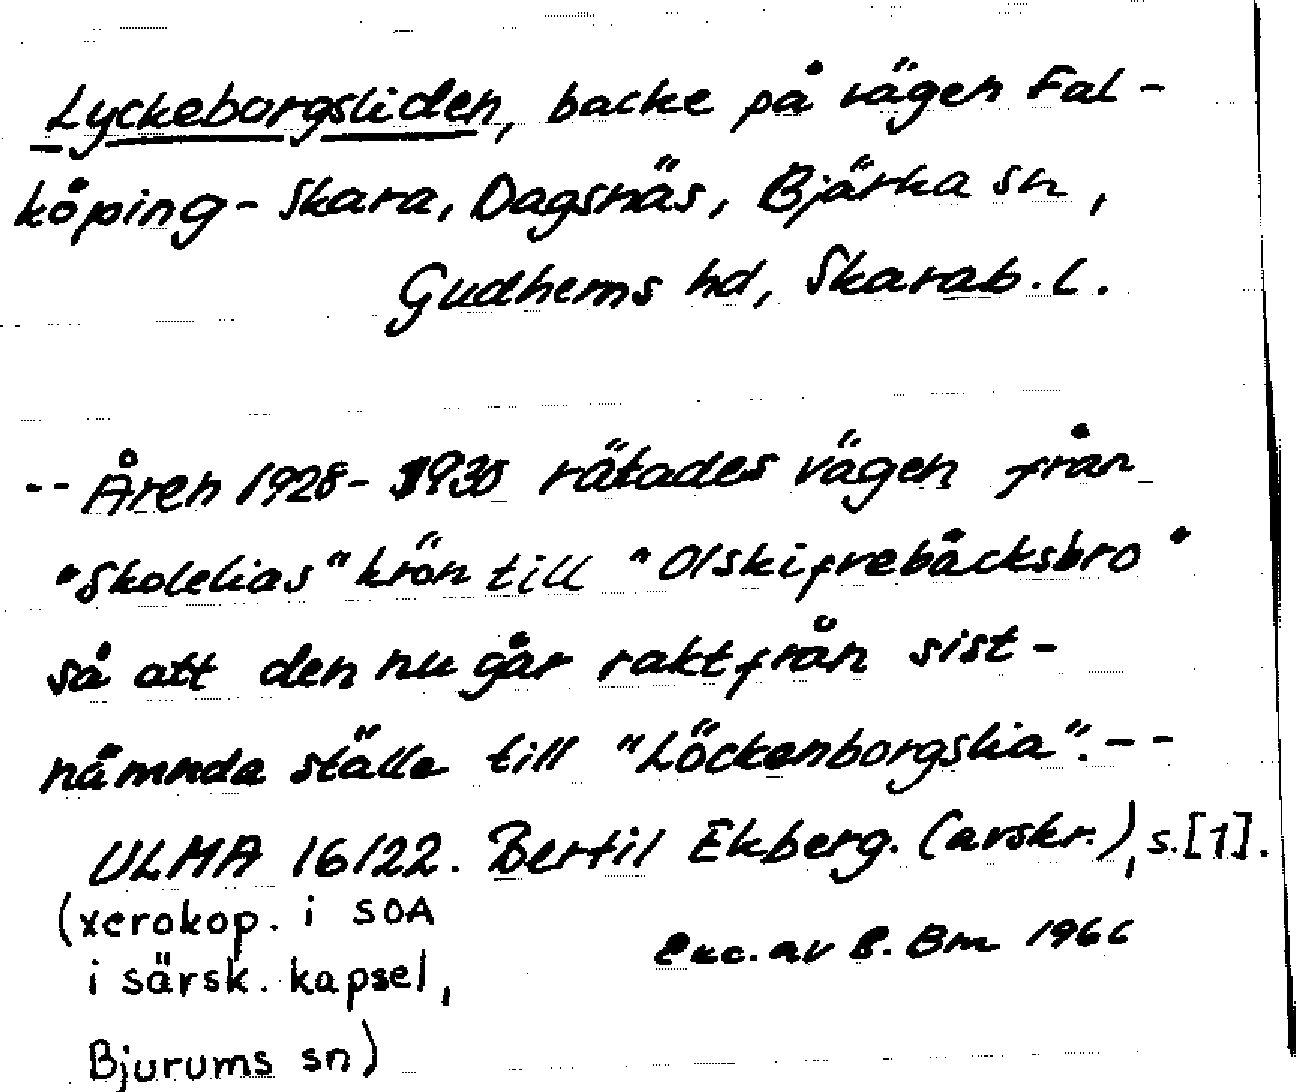 Lyckeborgsliden, backe på vägen Fal-
köping - Skara, Dagsnäs, Bjärka sn,
Gudhems hd, Skarab. l.
-- Åren 1928-1930 rätades vägen från
"Skolelias" krön till "Olskifrebäcksbro"
så att den nu går rakt från sist-
nämnda ställe till "Löckenborgslia". --
ULMA 16122. Bertil Ekberg. (avskr.), s. [1].
(xerokop. i SOA
i särsk. kapsel,
Bjurums sn)
exc. av B. Bm 1966